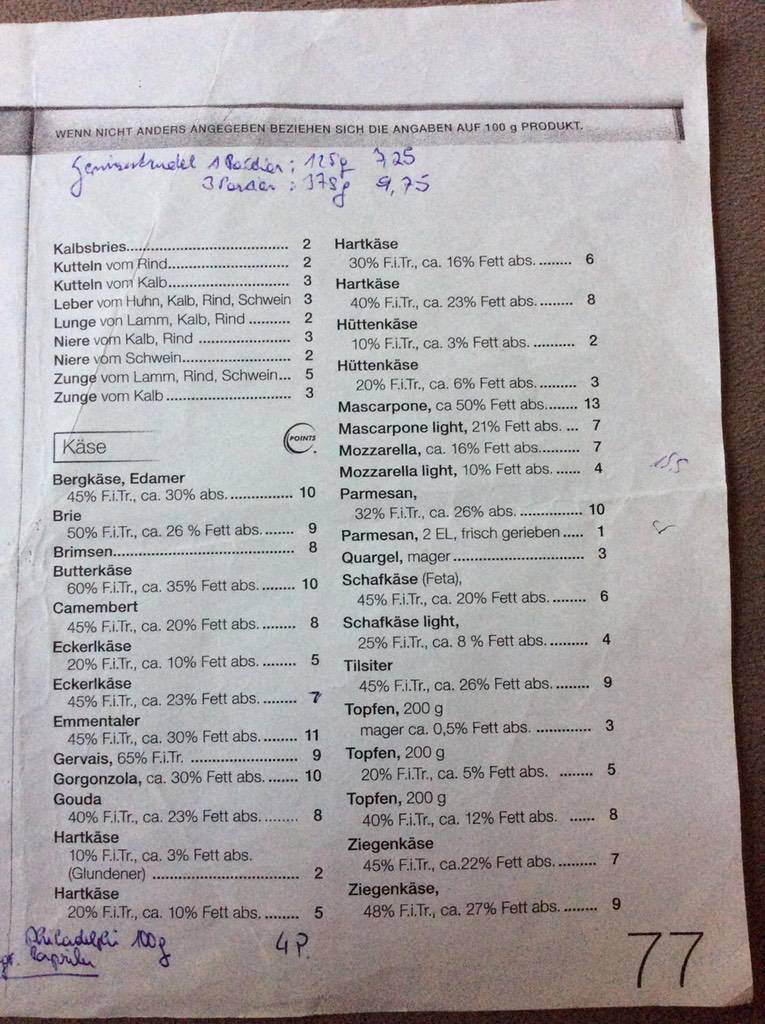 WENN NICHT ANDERS ANGEGEBEN BEZIEHEN SICH DIE ANGABEN AUF 100 g PRODUKT.
1 : 125g 3,25
3 : 375g 9,75
Kalbsbries........................................ 2
Kutteln vom Rind.............................. 2
Kutteln vom Kalb.............................. 3
Leber vom Huhn, Kalb, Rind, Schwein 3
Lunge von Lamm, Kalb, Rind .......... 2
Niere vom Kalb, Rind ...................... 3
Niere vom Schwein.......................... 2
Zunge vom Lamm, Rind, Schwein... 5
Zunge vom Kalb .............................. 3
Käse
POINTS
Bergkäse, Edamer
45% F.i.Tr., ca. 30% abs. ............... 10
Brie
50% F.i.Tr., ca. 26 % Fett abs. ....... 9
Brimsen............................................ 8
Butterkäse
60% F.i.Tr., ca. 35% Fett abs. ........ 10
Camembert
45% F.i.Tr., ca. 20% Fett abs. ........ 8
Eckerlkäse
20% F.i.Tr., ca. 10% Fett abs. ........ 5
Eckerlkäse
45% F.i.Tr., ca. 23% Fett abs. ........ 7
Emmentaler
45% F.i.Tr., ca. 30% Fett abs. ........ 11
Gervais, 65% F.i.Tr. ......................... 9
Gorgonzola, ca. 30% Fett abs. ....... 10
Gouda
40% F.i.Tr., ca. 23% Fett abs. ........ 8
Hartkäse
10% F.i.Tr., ca. 3% Fett abs.
(Glundener) ................................... 2
Hartkäse
20% F.i.Tr., ca. 10% Fett abs. ........ 5
Philadelphi 100g 4 P.
Paprika
Hartkäse
30% F.i.Tr., ca. 16% Fett abs. ........ 6
Hartkäse
40% F.i.Tr., ca. 23% Fett abs. ........ 8
Hüttenkäse
10% F.i.Tr., ca. 3% Fett abs. .......... 2
Hüttenkäse
20% F.i.Tr., ca. 6% Fett abs. ......... 3
Mascarpone, ca 50% Fett abs. ....... 13
Mascarpone light, 21% Fett abs. ... 7
Mozzarella, ca. 16% Fett abs. ......... 7
Mozzarella light, 10% Fett abs. ...... 4
Parmesan,
32% F.i.Tr., ca. 26% abs. ............... 10
Parmesan, 2 EL, frisch gerieben ..... 1
Quargel, mager ............................... 3
Schafkäse (Feta),
45% F.i.Tr., ca. 20% Fett abs. ........ 6
Schafkäse light,
25% F.i.Tr., ca. 8 % Fett abs. ......... 4
Tilsiter
45% F.i.Tr., ca. 26% Fett abs. ........ 9
Topfen, 200 g
mager ca. 0,5% Fett abs. ............. 3
Topfen, 200 g
20% F.i.Tr., ca. 5% Fett abs. ........ 5
Topfen, 200 g
40% F.i.Tr., ca. 12% Fett abs. ...... 8
Ziegenkäse
45% F.i.Tr., ca.22% Fett abs. ......... 7
Ziegenkäse,
48% F.i.Tr., ca. 27% Fett abs. ........ 9
77